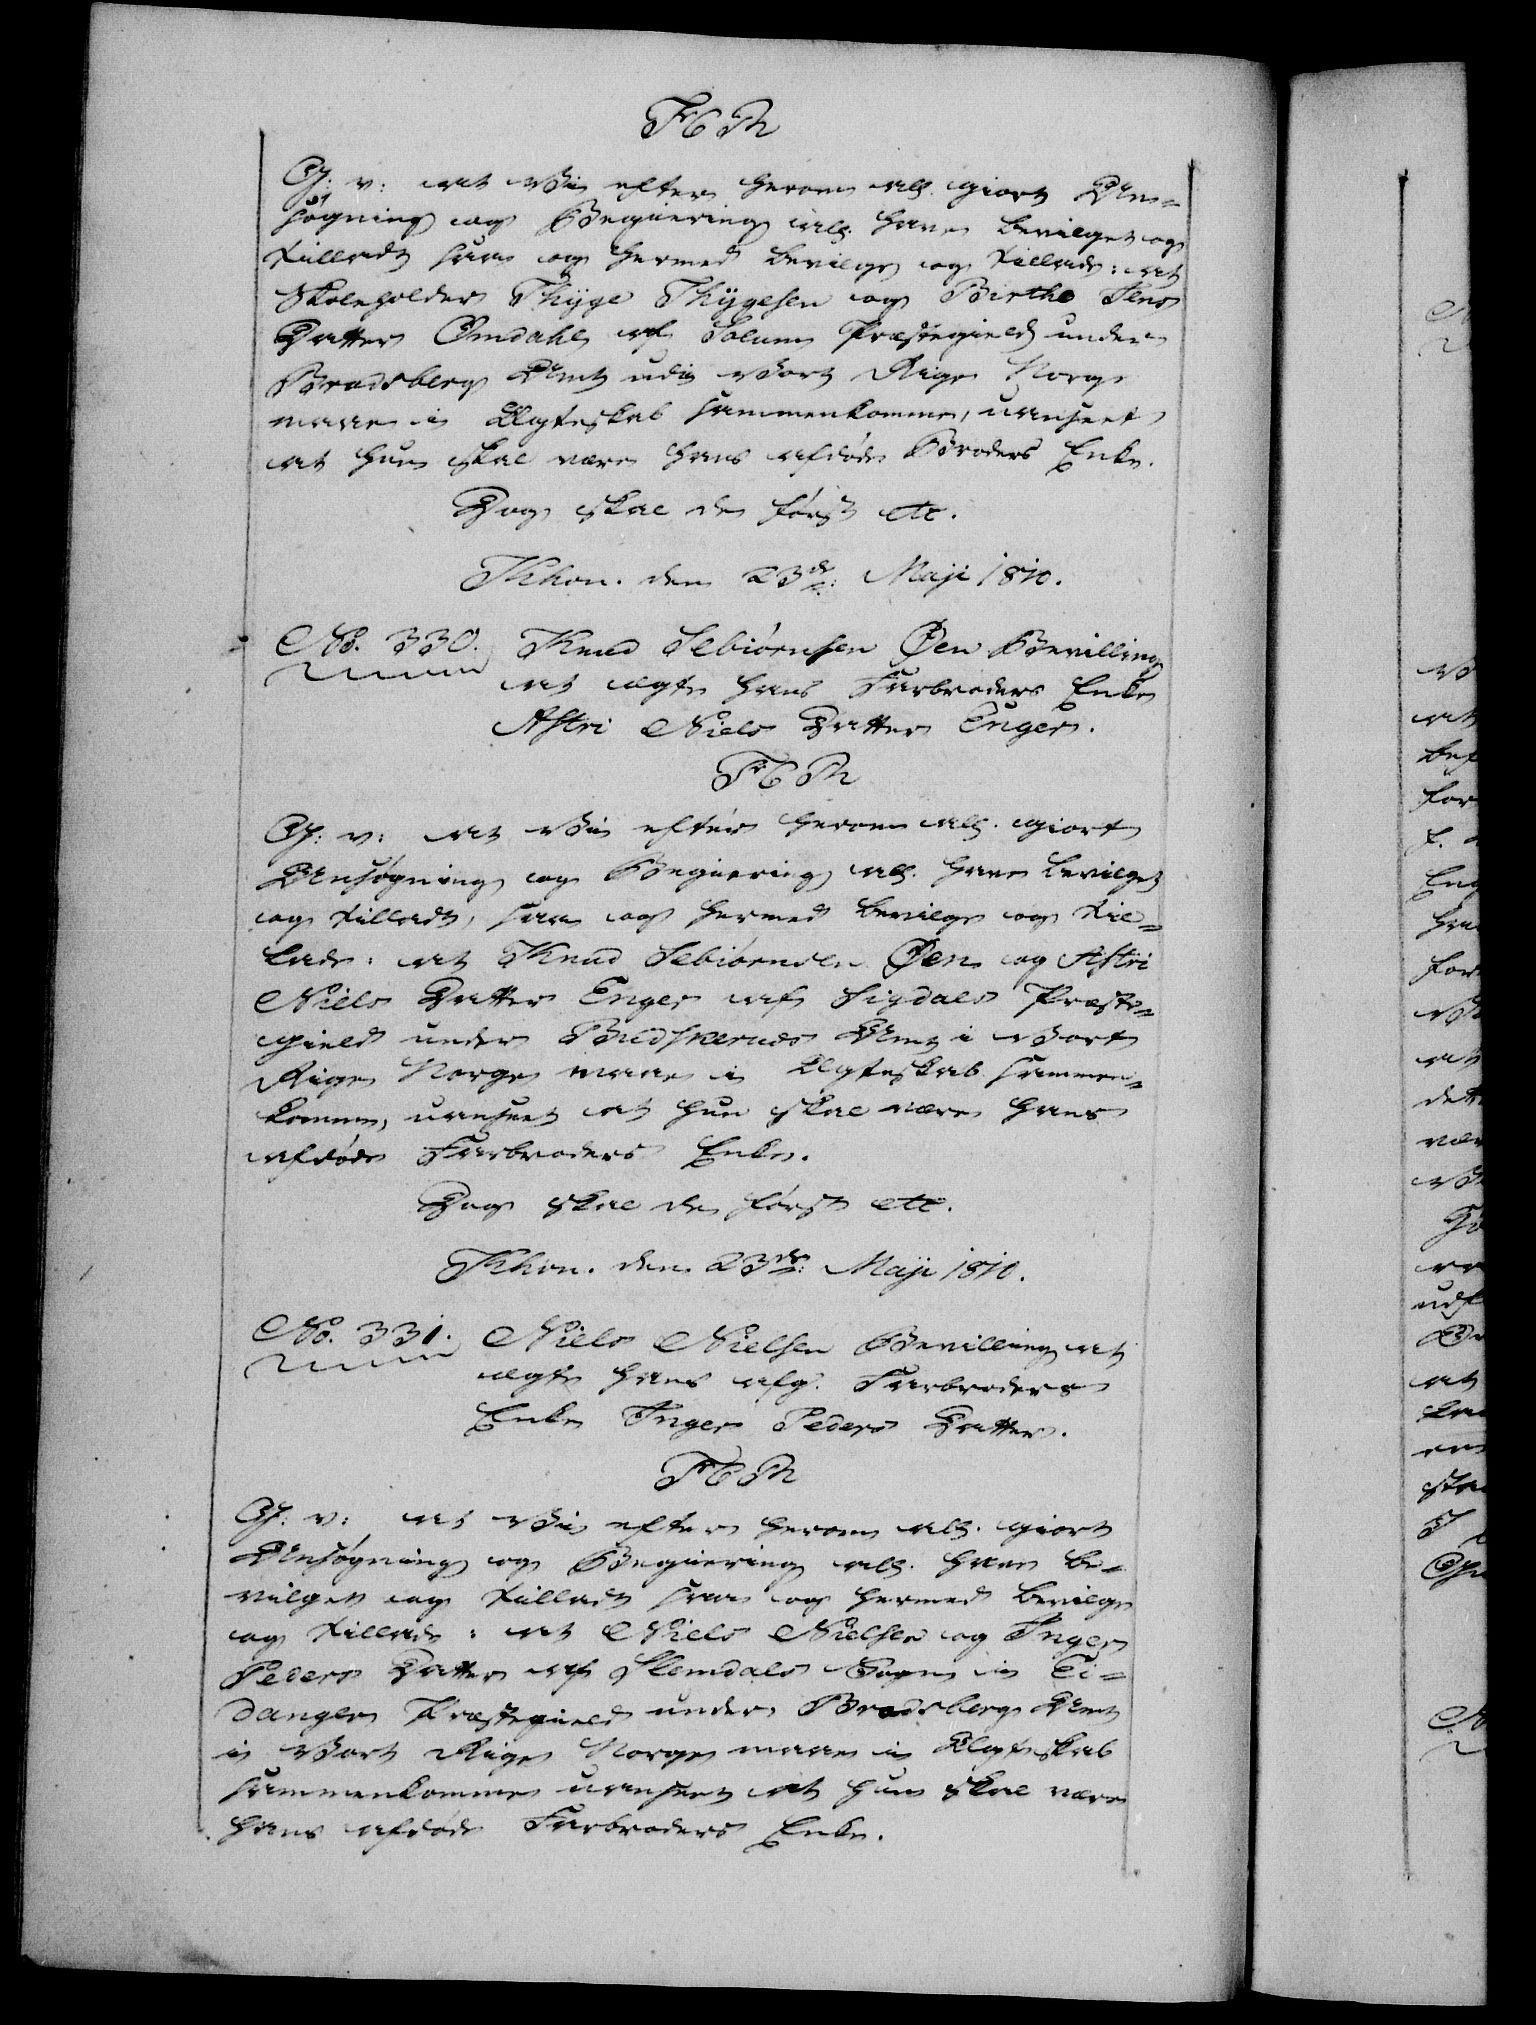 F 6 R
G: v: at Vi efter herom all. giort An-
søgning og Begiering all. have bevilget og
tilladt saa og hermed bevilge og tillade: at
Skoleholder Thyge Thygesen og Birthe Jens
Datter Omdahl af Solum Præstegield under
Bradsberg Amt udi Vort Rige Norge
maae i Ægteskab sammenkomme, uanseet
at hun skal være hans afdøde Broders Enke.
Dog skal de først etc.
Khvn. den 23de: Maji 1810.
No. 330. Knud Sebiørnsen Øen Bevilling
at ægte hans Farbroders Enke
Astri Niels Datter Enger.
F 6 R
G: v: at Vi efter herom all. giort
Ansøgning og Begiering all. have bevilget
og tilladt, saa og hermed bevilge og til-
lade: at Knud Sebiørnsen Øen og Astri
Niels Datter Enger af Sigdals Præste-
gield under Budskeruds Amt i Vort
Rige Norge maae i Ægteskab sammen-
komme, uanseet at hun skal være hans
afdøde Farbroders Enke.
Dog skal de først etc.
Khvn. den 23de: Maji 1810.
No. 331. Niels Nielsen Bevilling at
ægte hans afg. Farbroders
Enke Inger Peders Datter.
F 6 R
G: v: at Vi efter herom all. giort
Ansøgning og Begiering all. have be-
vilget og tilladt saa og hermed bevilge
og tillade: at Niels Nielsen og Inger
Peders Datter af Slemdals Sogn i Ei-
danger Præstegield under Bradsberg Amt
i Vort Rige Norge maae i Ægteskab
sammenkomme uanseet at hun skal være
hans afdøde Farbroders Enke.